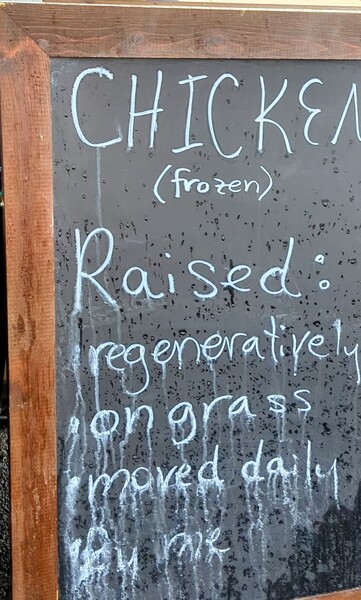 CHICKEN
(frozen)
Raised:
• regeneratively
• on grass
• moved daily
• By me